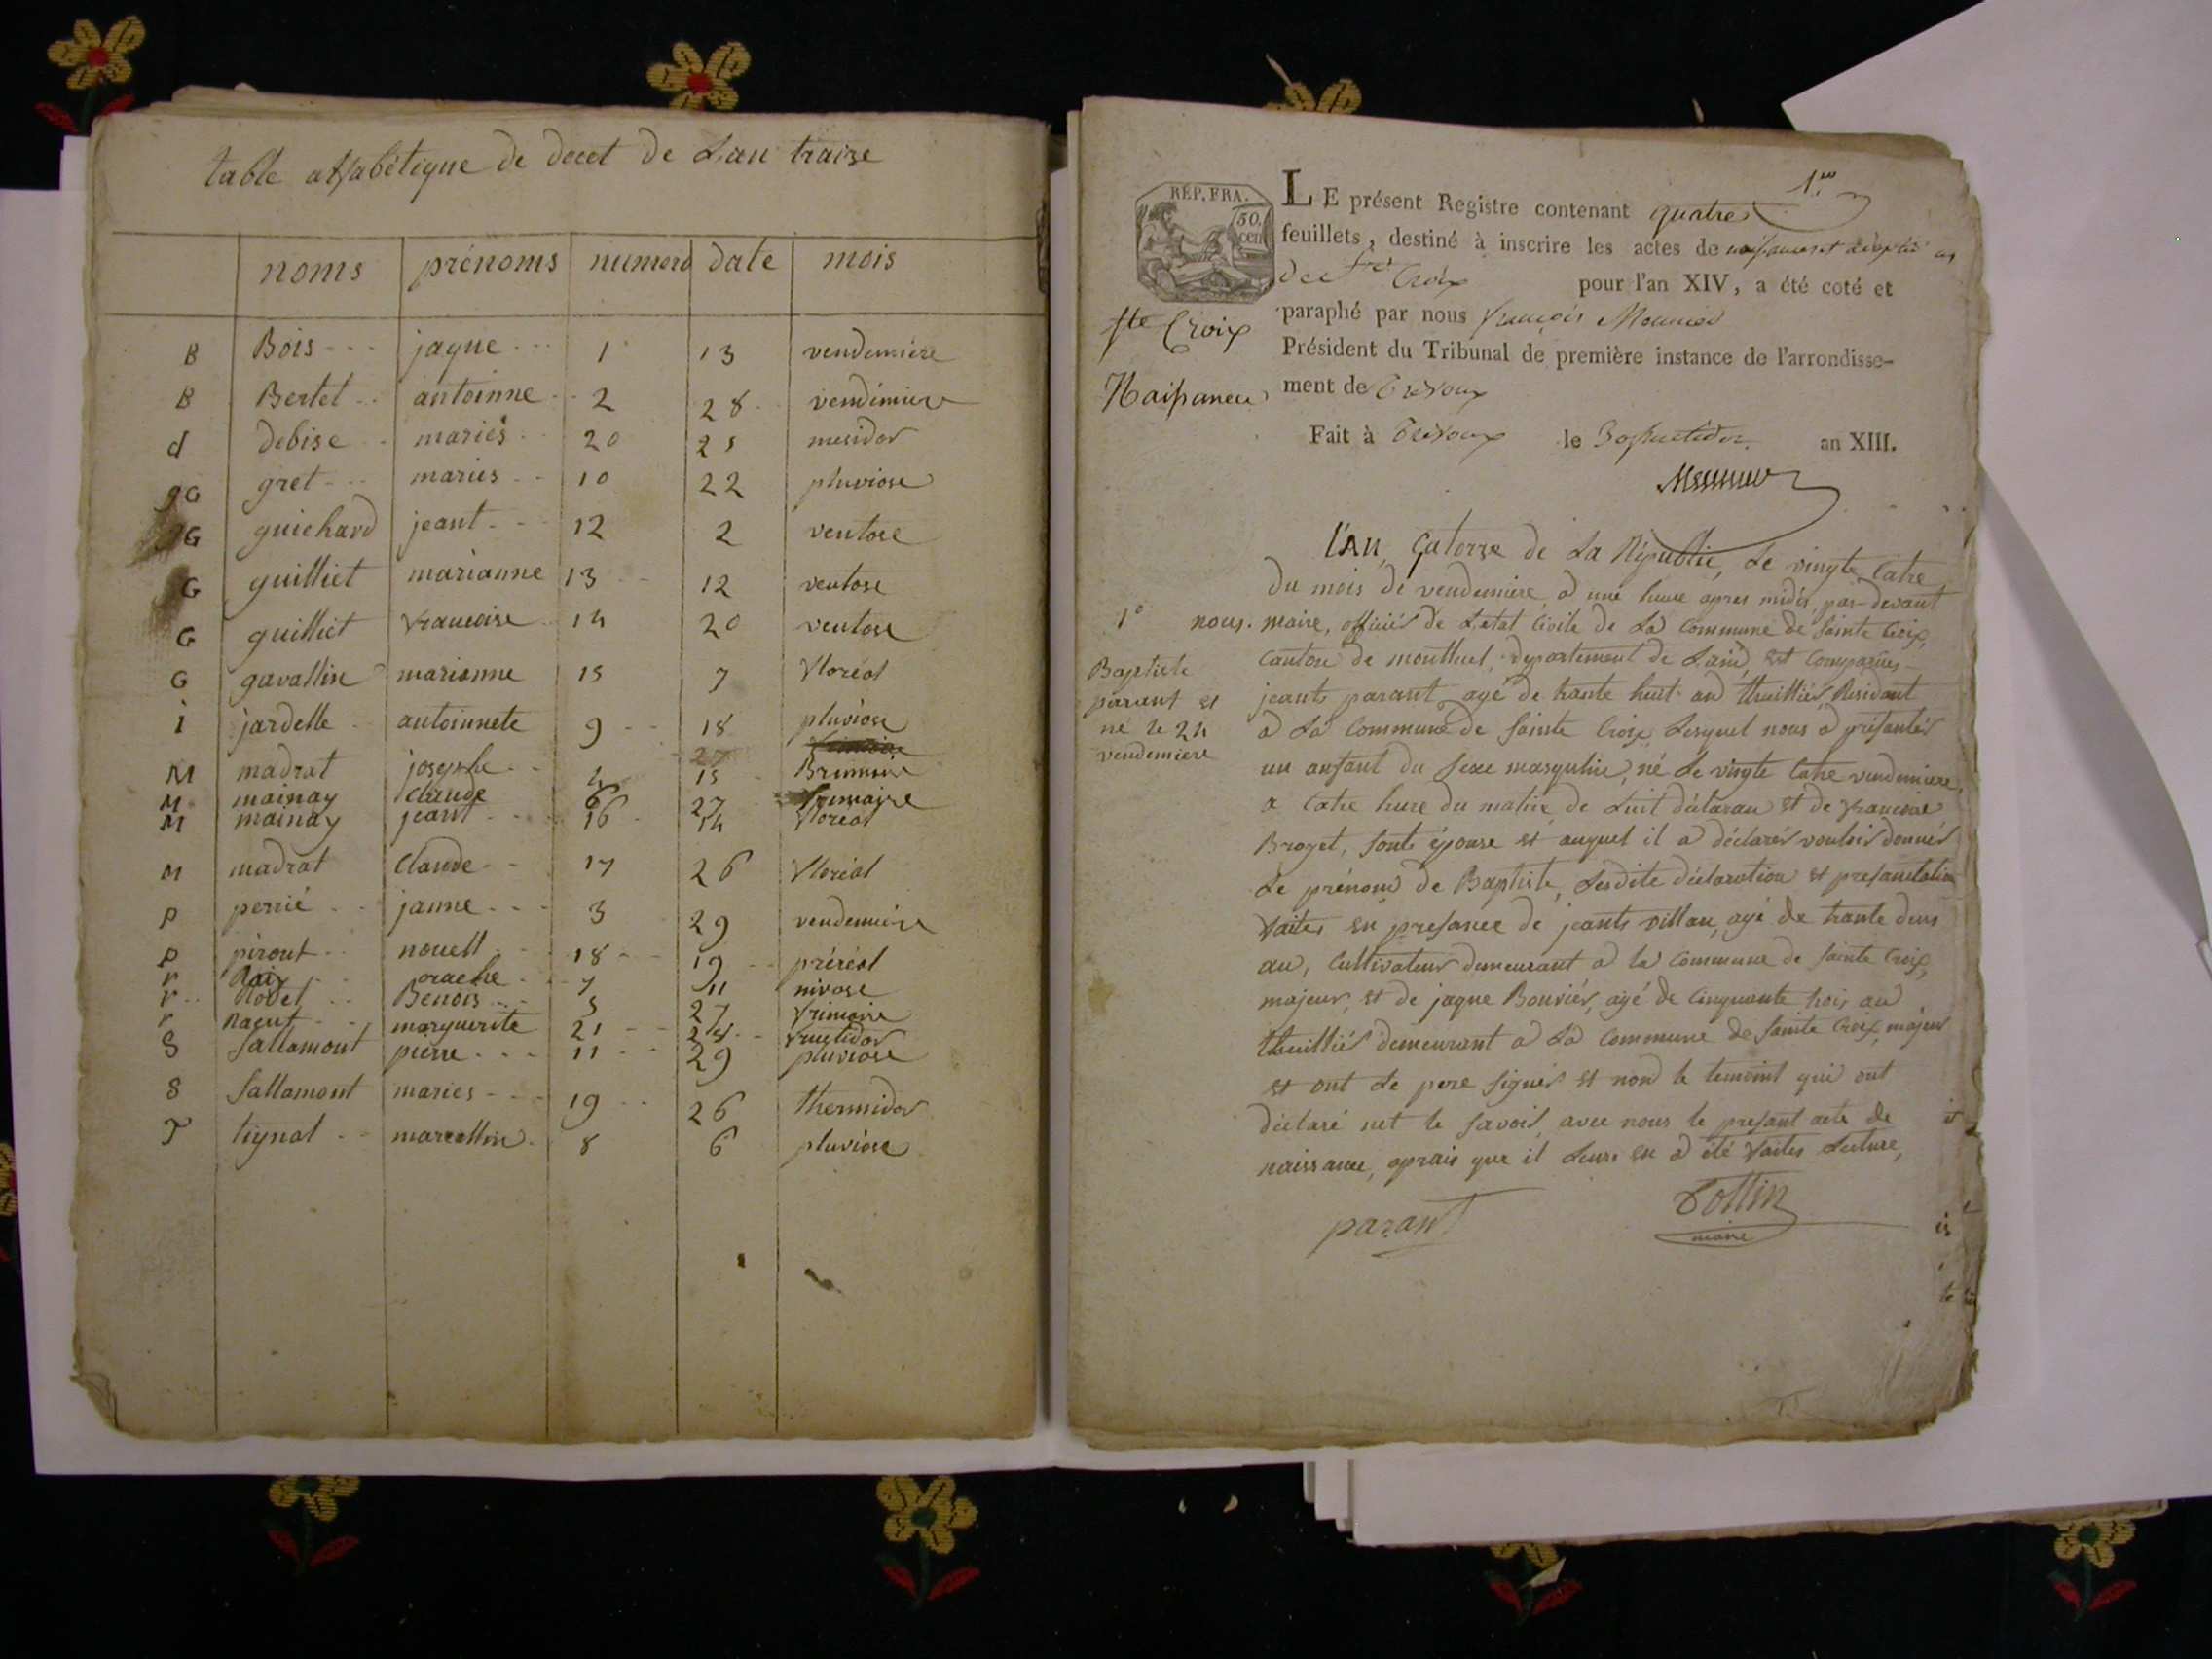 table alfabétique de decet de Lan traize
noms prénoms numero date mois
B Bois jaque 1 13 vendemiere
B Bertet antoinne 2 28 vendémiere
d debise mariés 20 25 mesidor
gG gret mariés 10 22 pluviose
gG guichard jeant 12 2 ventose
G guilliet marianne 13 12 ventose
G guilliet francoise 14 20 ventose
G gavallin marianne 15 7 floréal
i jardelle antoinnete 9 18 pluviose
M madrat josephe 4 15 Brumaire
M mainay claude 6 27 frimaire
M mainay jeant 16 14 floreal
M madrat claude 17 26 floréal
p perrié janne 3 29 vendemiere
p pirout nouell 18 19 préréal
r Raix 7 11 nivose
r Rodet Benois 5 27 frimaire
r marguerite 21 24 fructidor
S Sallamont pierre 11 29 pluviose
S Sallamont maries 19 26 thermidor
T tignat marcellin 8 6 pluviose
1.er
RÉP. FRA.
50. cen
LE présent Registre contenant quatre
feuillets, destiné à inscrire les actes de
de Ste Croix pour l'an XIV, a été coté et
paraphé par nous françois Mounier
Président du Tribunal de première instance de l'arrondisse-
ment de Trévoux
Ste Croix
Naissances
Fait à Trévoux le 30 fructidor an XIII.
L'AN, Catorze de La République, Le vingte Catre
du mois de vendemiere, a une heure apres midis, par-devant
nous. maire, officiér de Letat Civile de La Commune de Sainte Croix,
Canton de montluel, département de Lain, est Comparues
jeants parant, agé de trante huit an thuilliér, Residant
a La Commune de Sainte Croix, Lesquel nous a présantés
un anfant du Sexe masqulin, né Le vingte Catre vendemiere,
a Catre hure du matin, de Luit déclarau et de francoise
Broyet, Sont épouse et auquel il a déclarér vouloir donnér
Le prénom de Baptiste, Lesdite déclaration et presantation
faites en presance de jeants villau, agé de trante deux
an, Cultivateur demeurant a la Commune de Sainte Croix,
majeur, et de jaque Bouviér, agé de Cinquante trois an
thuilliér demeurant a La Commune de Sainte Croix, majeur
et ont Le pere Signér et nond le temoint qui ont
déclaré net le Savoir, avec nous le presant acte de
naissance, aprais que il Leurs en a été faites Lecture,
1°
Baptiste
parant et
né le 24
vendemiere
parant
Tollin
maire